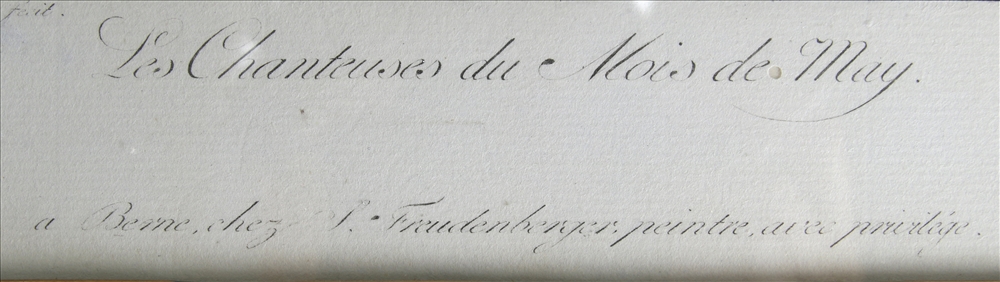 fecit.
Les Chanteuses du Mois de May.
a Berne, chez S. Freudenberger, peintre, avec privilége.